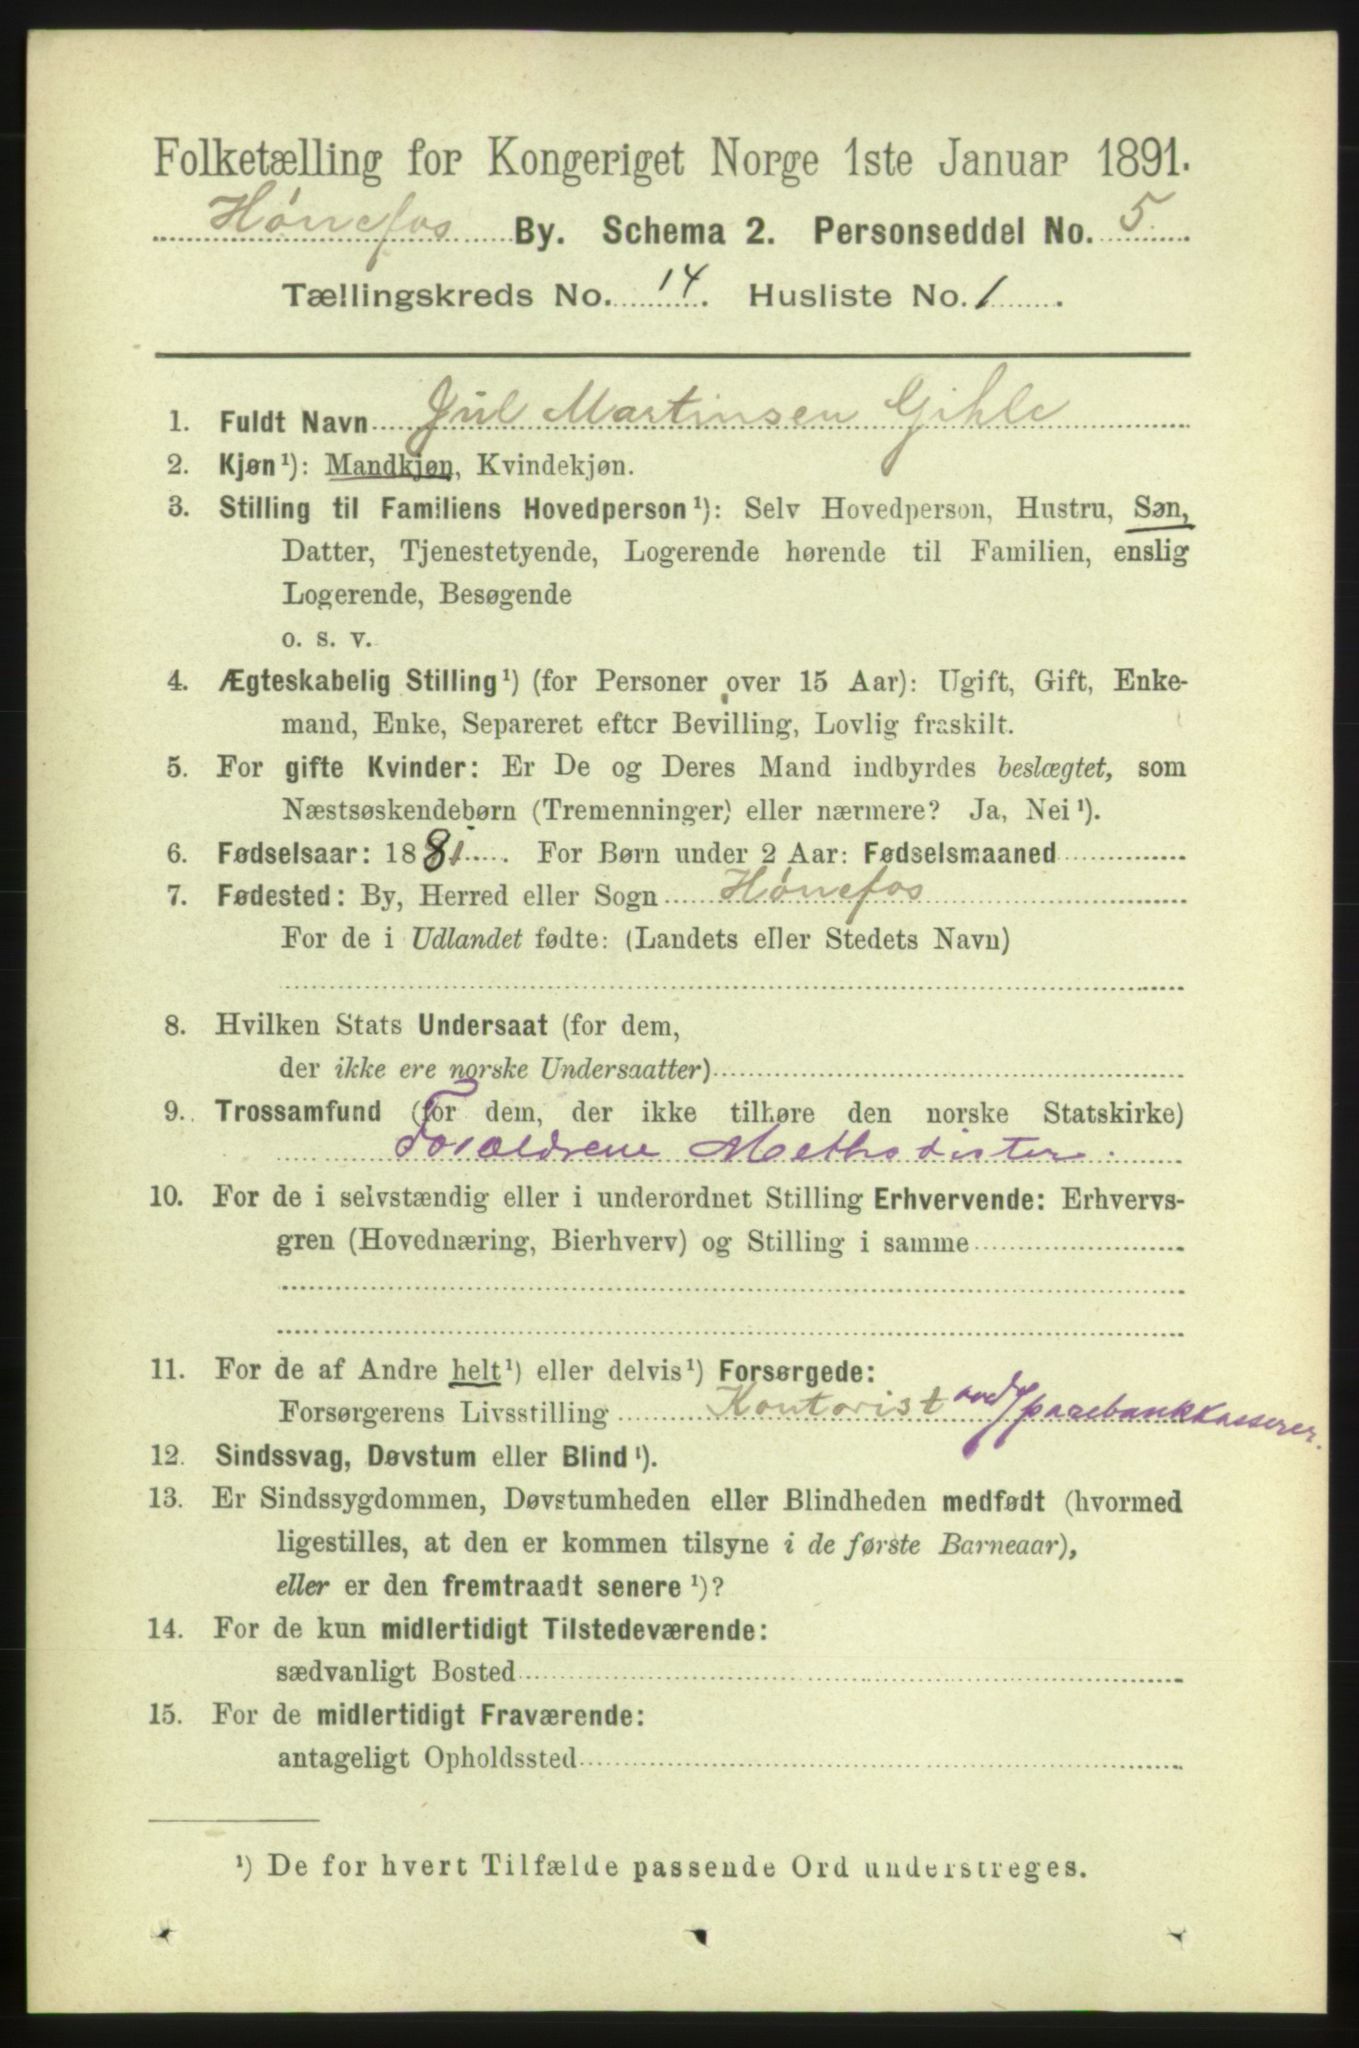 Folketælling for Kongeriget Norge 1ste Januar 1891.
Hönefos By. Schema 2. Personseddel No. 5
Tællingskreds No. 14. Husliste No. 1.
1. Fuldt Navn Jül Martinsen Gihle
2. Kjøn¹): Mandkjøn, Kvindekjøn.
3. Stilling til Familiens Hovedperson¹): Selv Hovedperson, Hustru, Søn,
Datter, Tjenestetyende, Logerende hørende til Familien, enslig
Logerende, Besøgende
o. s. v.
4. Ægteskabelig Stilling¹) (for Personer over 15 Aar): Ugift, Gift, Enke-
mand, Enke, Separeret efter Bevilling, Lovlig fraskilt.
5. For gifte Kvinder: Er De og Deres Mand indbyrdes beslægtet, som
Næstsøskendebørn (Tremenninger) eller nærmere? Ja, Nei¹).
6. Fødselsaar: 1881. For Børn under 2 Aar: Fødselsmaaned
7. Fødested: By, Herred eller Sogn Hönefos
For de i Udlandet fødte: (Landets eller Stedets Navn)
8. Hvilken Stats Undersaat (for dem,
der ikke ere norske Undersaatter)
9. Trossamfund (for dem, der ikke tilhøre den norske Statskirke)
Forældrene Methodister.
10. For de i selvstændig eller i underordnet Stilling Erhvervende: Erhvervs-
gren (Hovednæring, Bierhverv) og Stilling i samme
11. For de af Andre helt¹) eller delvis¹) Forsørgede:
Forsørgerens Livsstilling Kontorist Sparebankkasserer.
12. Sindssvag, Døvstum eller Blind¹).
13. Er Sindssygdommen, Døvstumheden eller Blindheden medfødt (hvormed
ligestilles, at den er kommen tilsyne i de første Barneaar),
eller er den fremtraadt senere¹)?
14. For de kun midlertidigt Tilstedeværende:
sædvanligt Bosted
15. For de midlertidigt Fraværende:
antageligt Opholdssted
¹) De for hvert Tilfælde passende Ord understreges.